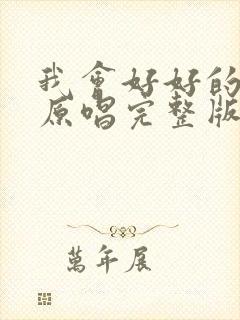 我會好好的
原唱完整版
萬年展